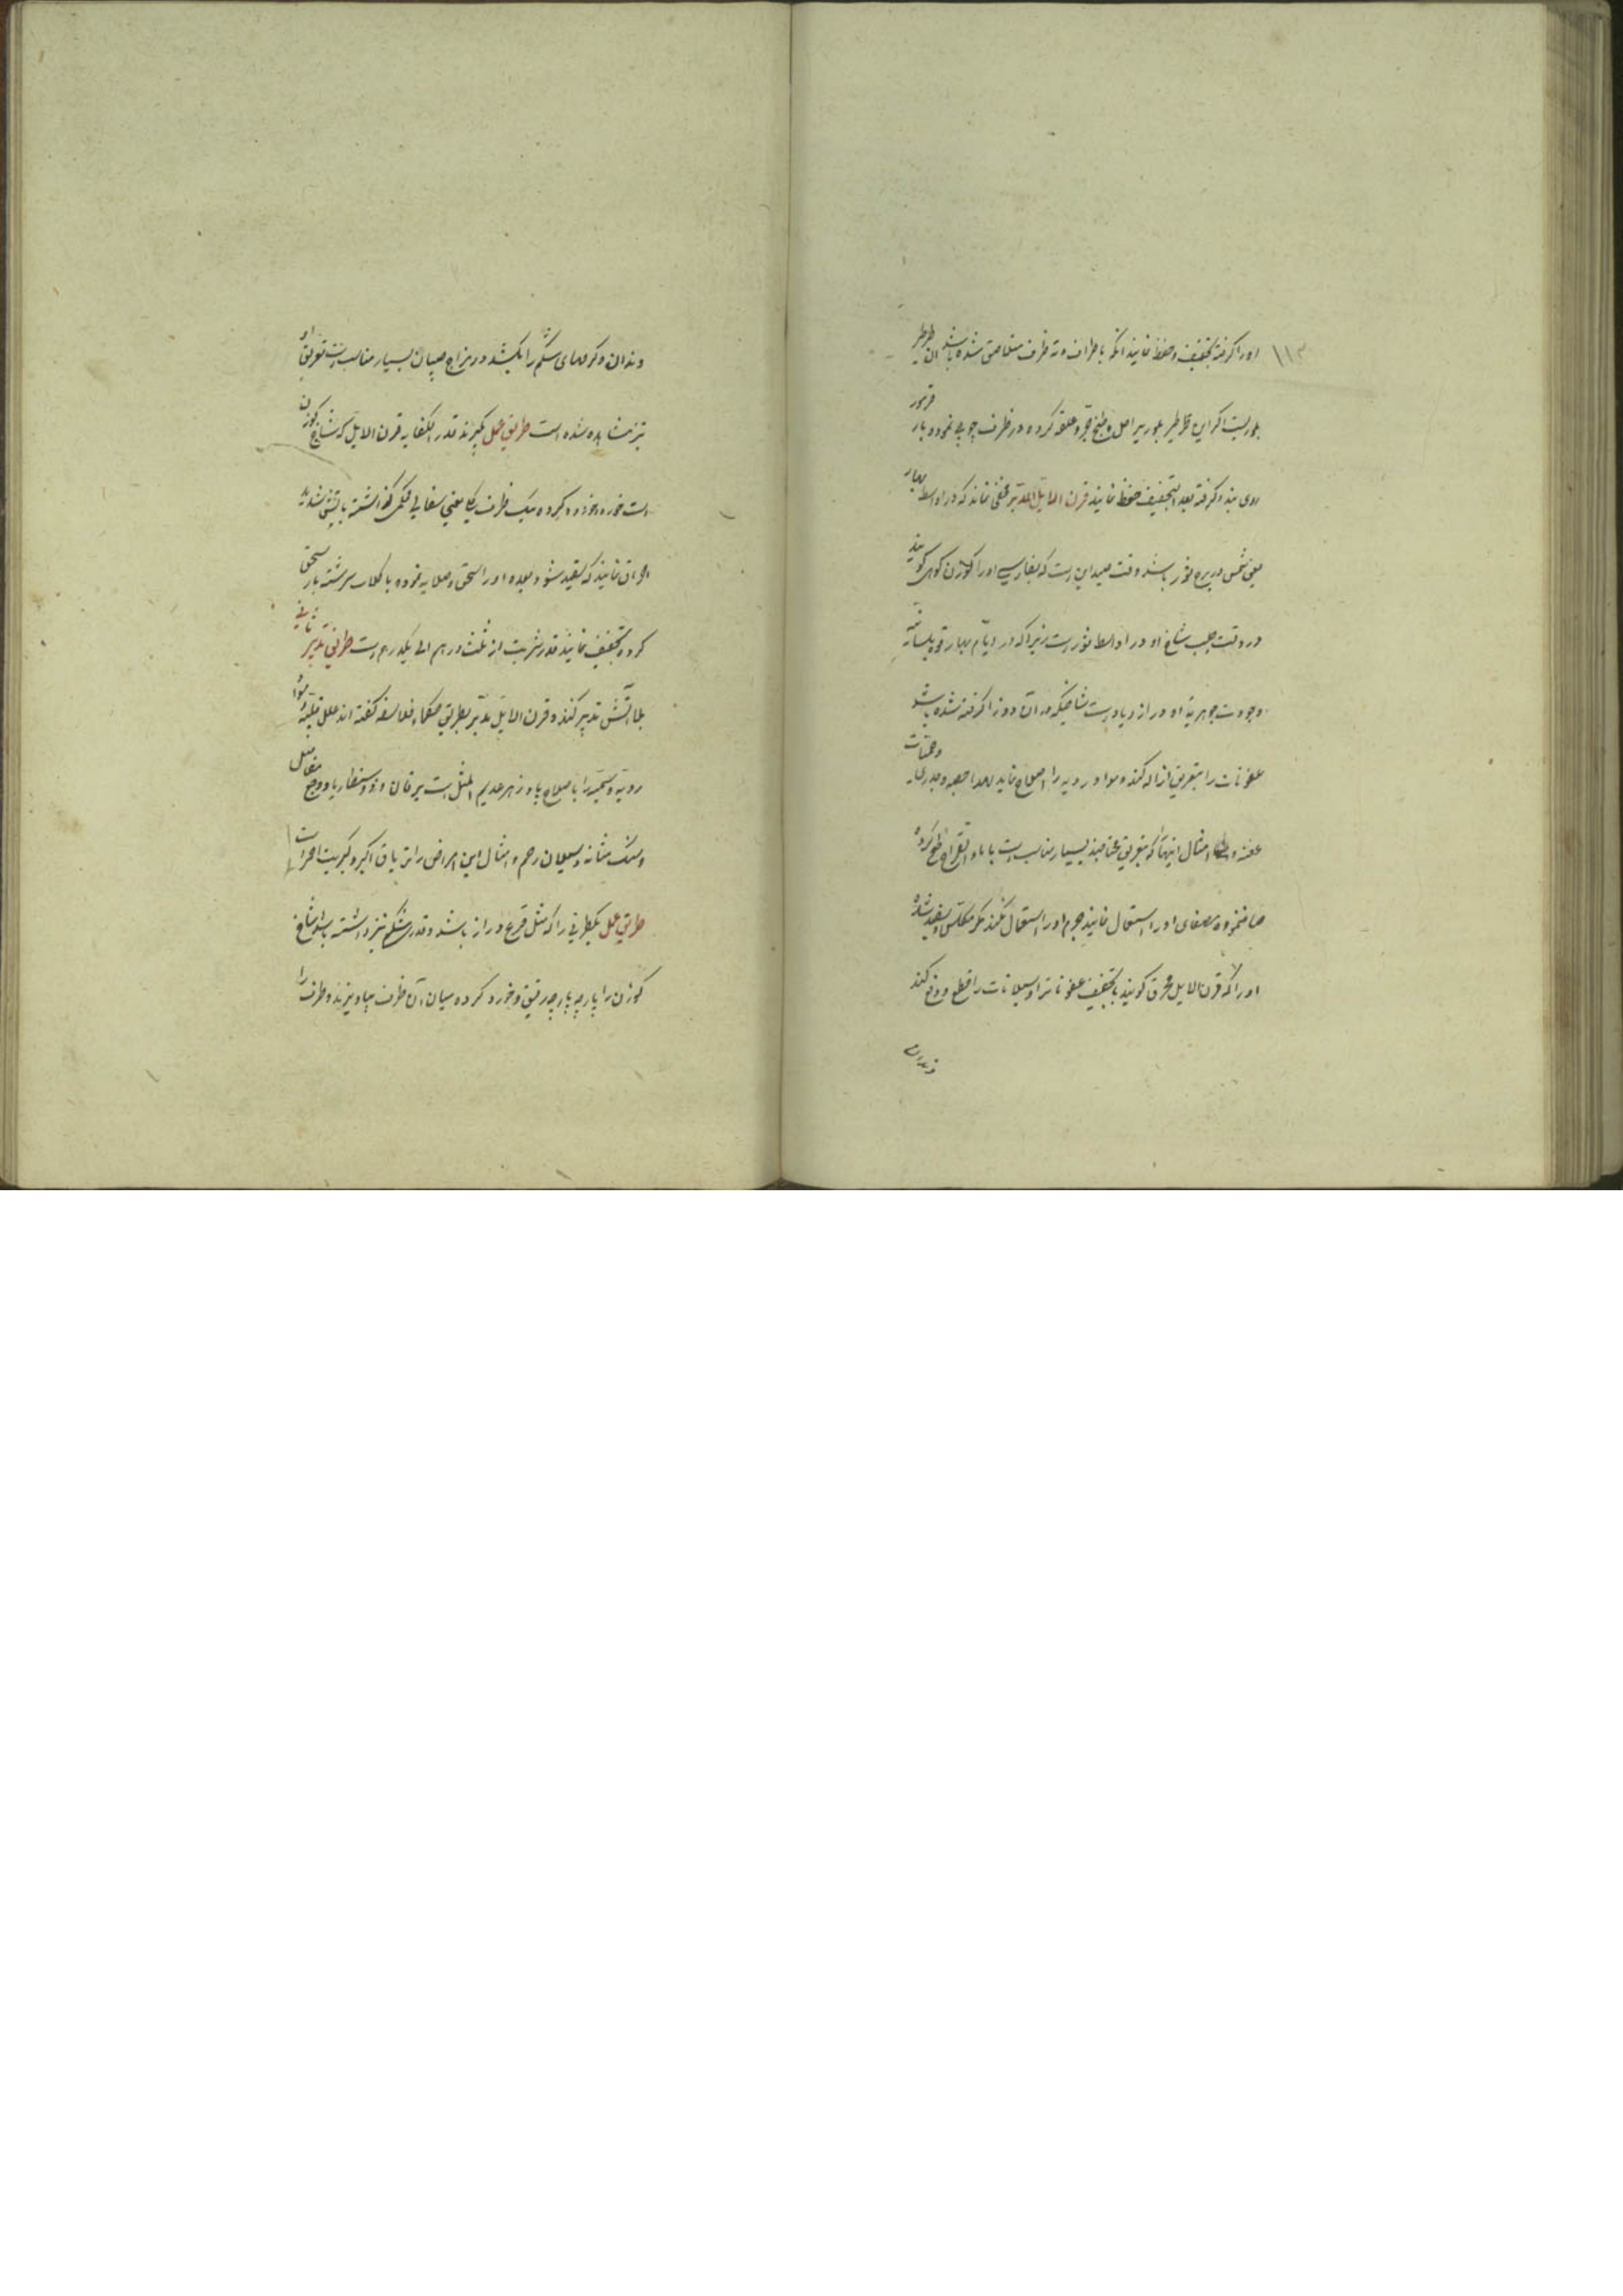 ۱۱۳
اورا گرفته تجفیف و حفظ نمایند انکه باطراف و ته ظرف متلاصق شده باشد ان طرطیر
بلوریست اکر این طرطیر بلوریرا حل و طبخ و عقد کرده در ظرف چوبی نموده بار
روی بندد گرفته بعد التجفیف حفظ نمایند قرن الایل المدبر مخفی نماند که در اواسط بهار
یعنی شمس در برج ثور باشد وقت صید این است که بفارسی اورا کوزن کوهی کویند
در وقت شاخ او در اواسط ثور است زیرا که در ایام بهار
وجودت جوهریة او در ازدیاد است شاخیکه در آن روز گرفته شده باشد
عفونات را بتعریق ازاله کند و مواد ردیه را اصلاح نماید لهذا حصبه و جدری و حمیات
عفنه و امثال اینها که بتعریق محتاجند بسیار مناسب است با ماء القراح طبخ کرده
صاف نموده مصفای اورا استعمال نمایند جرم اورا استعمال نکنند مکر مکلس سفید شده
اورا که قرن الایل محرق کویند بتجفیف عفونات و سیلانات را قطع و دفع کند
دندان و کرمهای شکم را بکشد در مزاج صبیان بسیار مناسب است تعریق او
نیز مشاهده شده است طریق عمل بگیرند قدر الکفایه قرن الایل که شاخ کوزن
است خورده خورده کرده بیک ظرف یعنی سفالی محکمی گذاشته باتش شدید
احراق نمایند که سفید شود بعده اورا سحق و صلایه نموده با کلاب سرشته باز سحق
کرده تجفیف نمایند قدر شربت از ثلث درهم الی یکدرهم است طریق تدبیر ثانی
بلا آتش تدبیر کنند و قرن الایل مدبر بطریق حکماء فلاسفه گفته اند علل قلبیه و مواد
ردیه و سمیه را باصلاح بادزهر عدیم المثل است یرقان و ذوسنطاریا و وجع مفاصل
و سنگ مثانه و سیلان رحم و امثال این امراض را تریاق اکبر و کبریت احمر است
طریق عمل یکظرفی را که مثل قرع دراز باشد و قدری شکم نیز داشته باشد شاخ
کوزن را پارچه پارچه رقیق و خورد کرده میان آن ظرف بیاویزند و ظرف را